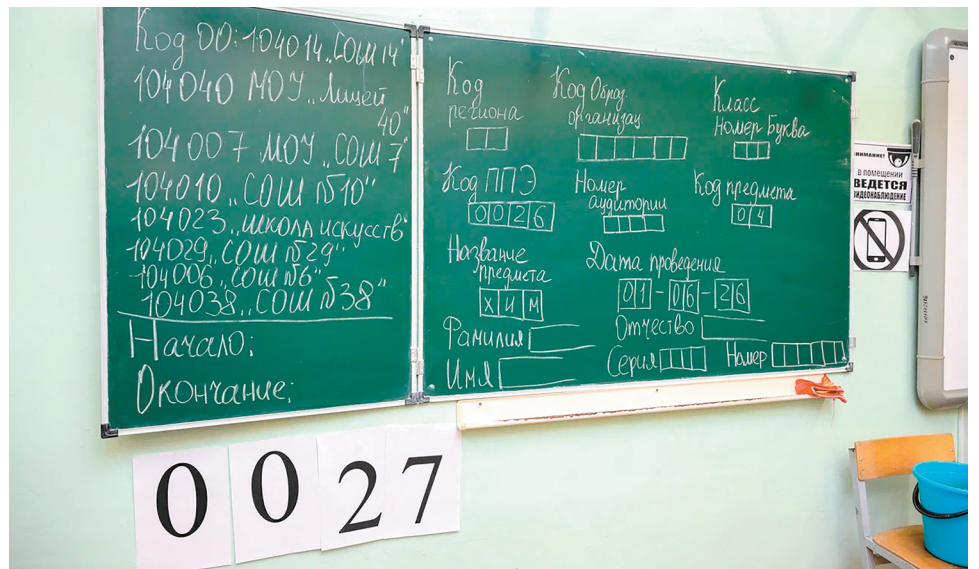 Код ОО: 104014 „СОШ 14"
104040 МОУ „Лицей
40"
104007 МОУ „СОШ 7"
104010 „СОШ №10"
104023 „школа искусств"
104029 „СОШ №29"
104006 „СОШ №6"
104038 „СОШ №38"
Начало:
Окончание:
Код
региона
Код Образ.
организац
Класс
Номер Буква
Код ППЭ
0026
Номер
аудитории
Код предмета
04
Название
предмета
хим
Дата проведения
01-06-26
Фамилия
Отчество
Имя
Серия
Номер
ВНИМАНИЕ!
В ПОМЕЩЕНИИ
ВЕДЕТСЯ
ВИДЕОНАБЛЮДЕНИЕ
0027